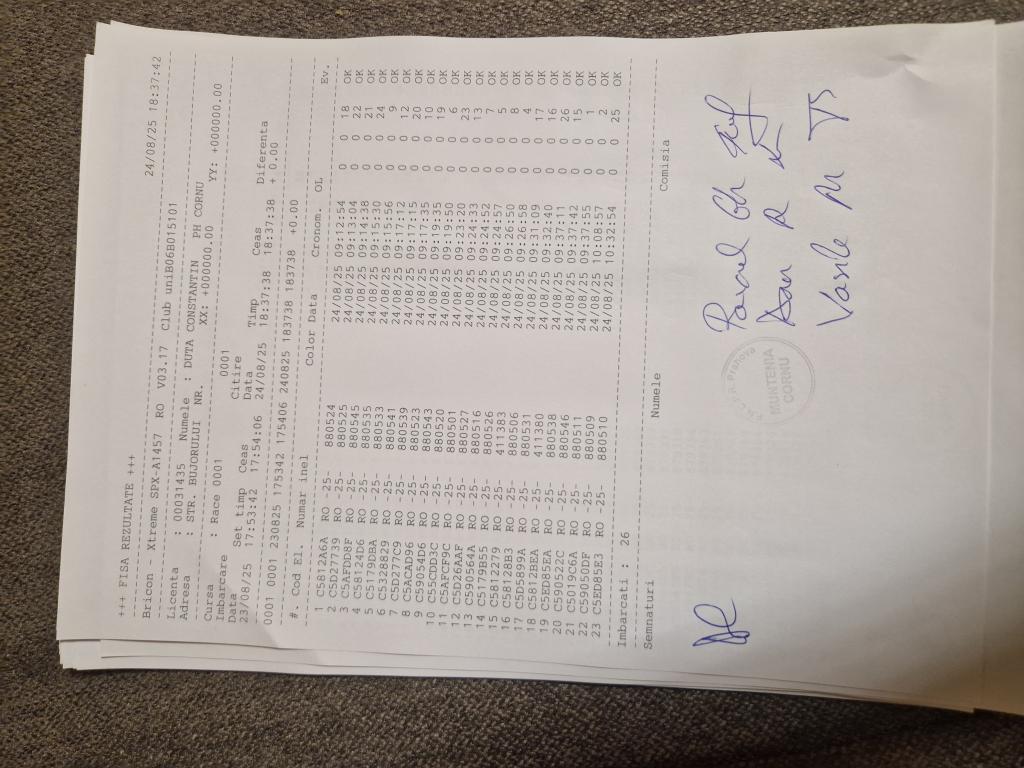 +++ FISA REZULTATE +++ 24/08/25 18:37:42
Bricon - Xtreme SPX-A1457 RO V03.17 Club uniB06B015101
Licenta : 00031435 Numele : DUTA CONSTANTIN PH CORNU
Adresa : STR. BUJORULUI NR. XX: +000000.00 YY: +000000.00
Cursa : Race 0001 0001
Imbarcare Citire
Data Set timp Ceas Data Timp Ceas Diferenta
23/08/25 17:53:42 17:54:06 24/08/25 18:37:38 18:37:38 + 0.00
0001 0001 230825 175342 175406 240825 183738 183738 +0.00
#. Cod El. Numar inel Color Data Cronom. OL Ev.
1 C5812A6A RO -25- 880524 24/08/25 09:12:54 0 0 18 OK
2 C5D27739 RO -25- 880525 24/08/25 09:13:04 0 0 22 OK
3 C5AFDD8F RO -25- 880545 24/08/25 09:14:38 0 0 21 OK
4 C58124D6 RO -25- 880535 24/08/25 09:15:30 0 0 24 OK
5 C5179DBA RO -25- 880533 24/08/25 09:15:56 0 0 9 OK
6 C5328829 RO -25- 880541 24/08/25 09:17:12 0 0 12 OK
7 C5D277C9 RO -25- 880539 24/08/25 09:17:15 0 0 20 OK
8 C5ACAD96 RO -25- 880523 24/08/25 09:17:35 0 0 10 OK
9 C59054D6 RO -25- 880543 24/08/25 09:19:35 0 0 19 OK
10 RO -25- 880520 24/08/25 09:19:50 0 0 6 OK
11 C5AFCF9C RO -25- 880501 24/08/25 09:23:20 0 0 23 OK
12 C5D26AAF RO -25- 880527 24/08/25 09:24:33 0 0 13 OK
13 C590564A RO -25- 880516 24/08/25 09:24:52 0 0 7 OK
14 C5179B55 RO -25- 880526 24/08/25 09:24:57 0 0 5 OK
15 C5812279 RO -25- 411383 24/08/25 09:26:50 0 0 8 OK
16 C58128B3 RO -25- 880506 24/08/25 09:26:58 0 0 4 OK
17 C5D5899A RO -25- 880531 24/08/25 09:31:09 0 0 17 OK
18 C5812BEA RO -25- 411380 24/08/25 09:32:40 0 0 16 OK
19 C5ED85EA RO -25- 880538 24/08/25 09:37:11 0 0 26 OK
20 C590522C RO -25- 880546 24/08/25 09:37:42 0 0 15 OK
21 C5019C6A RO -25- 880511 24/08/25 09:37:55 0 0 1 OK
22 C59050DF RO -25- 880509 24/08/25 10:08:57 0 0 2 OK
23 C5ED85E3 RO -25- 880510 24/08/25 10:32:54 0 0 25 OK
Imbarcati : 26
Semnaturi Numele Comisia
Prahova
MUNTENIA
CORNU
Vasile